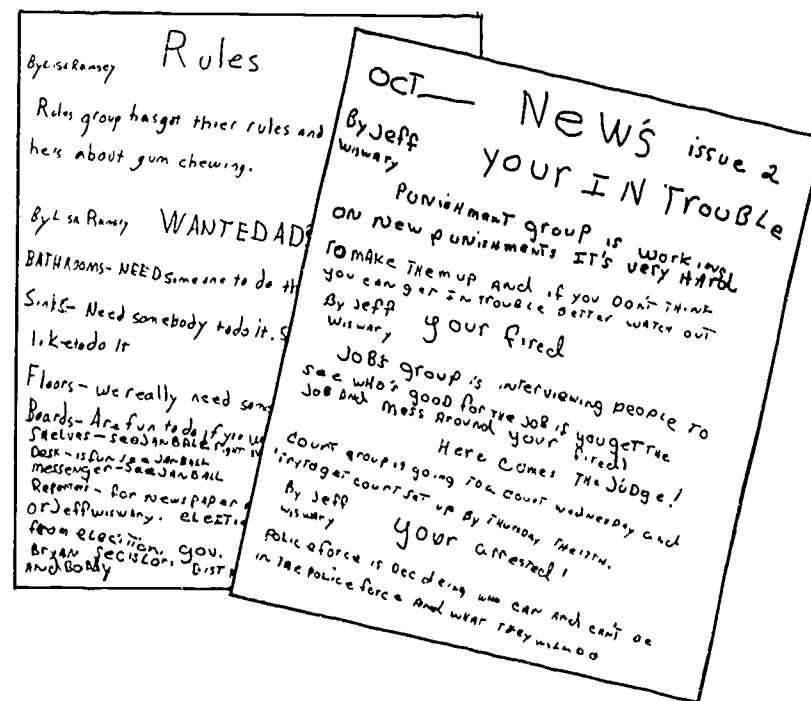 Rules
By Lisa Ramsey
Rules group has got thier rules and
he's about gum chewing.
By Lisa Ramsey WANTED ADS
BATHROOMS- NEED someone to do th
Sinks- Need somebody todo it. S
like todo it
Floors- we really need som
Boards- Are fun to do if you w
SHELVES- see JAN BALL RIGHT
Desk- is fun see JAN BALL
messenger- see JAN BALL
Reporters- for Newspaper
Or Jeff wiswary.
from election. gov.
BRYAN
AND BOBBY
OCT___ NEWS issue 2
By Jeff
wiswary
your IN TrouBLe
PUNISHMENT group is working
ON New PUNISHMENTS IT'S very HARD
TO MAKE THEM UP And if you DON'T THINK
you can get IN TrouBLe BETTER WATCH OUT
By Jeff
wiswary
your fired
JOBS group is interviewing people TO
see who's good for the JOB if you get THE
JOB And mess Around your fired!
Here comes The JUDge!
Court group is going To a court wednesday and
try to get court set up By THursDay THe 17TH.
By Jeff
wiswary
your arrested!
POLICE force is Decideing who can And can't be
in the police force And what they will DO